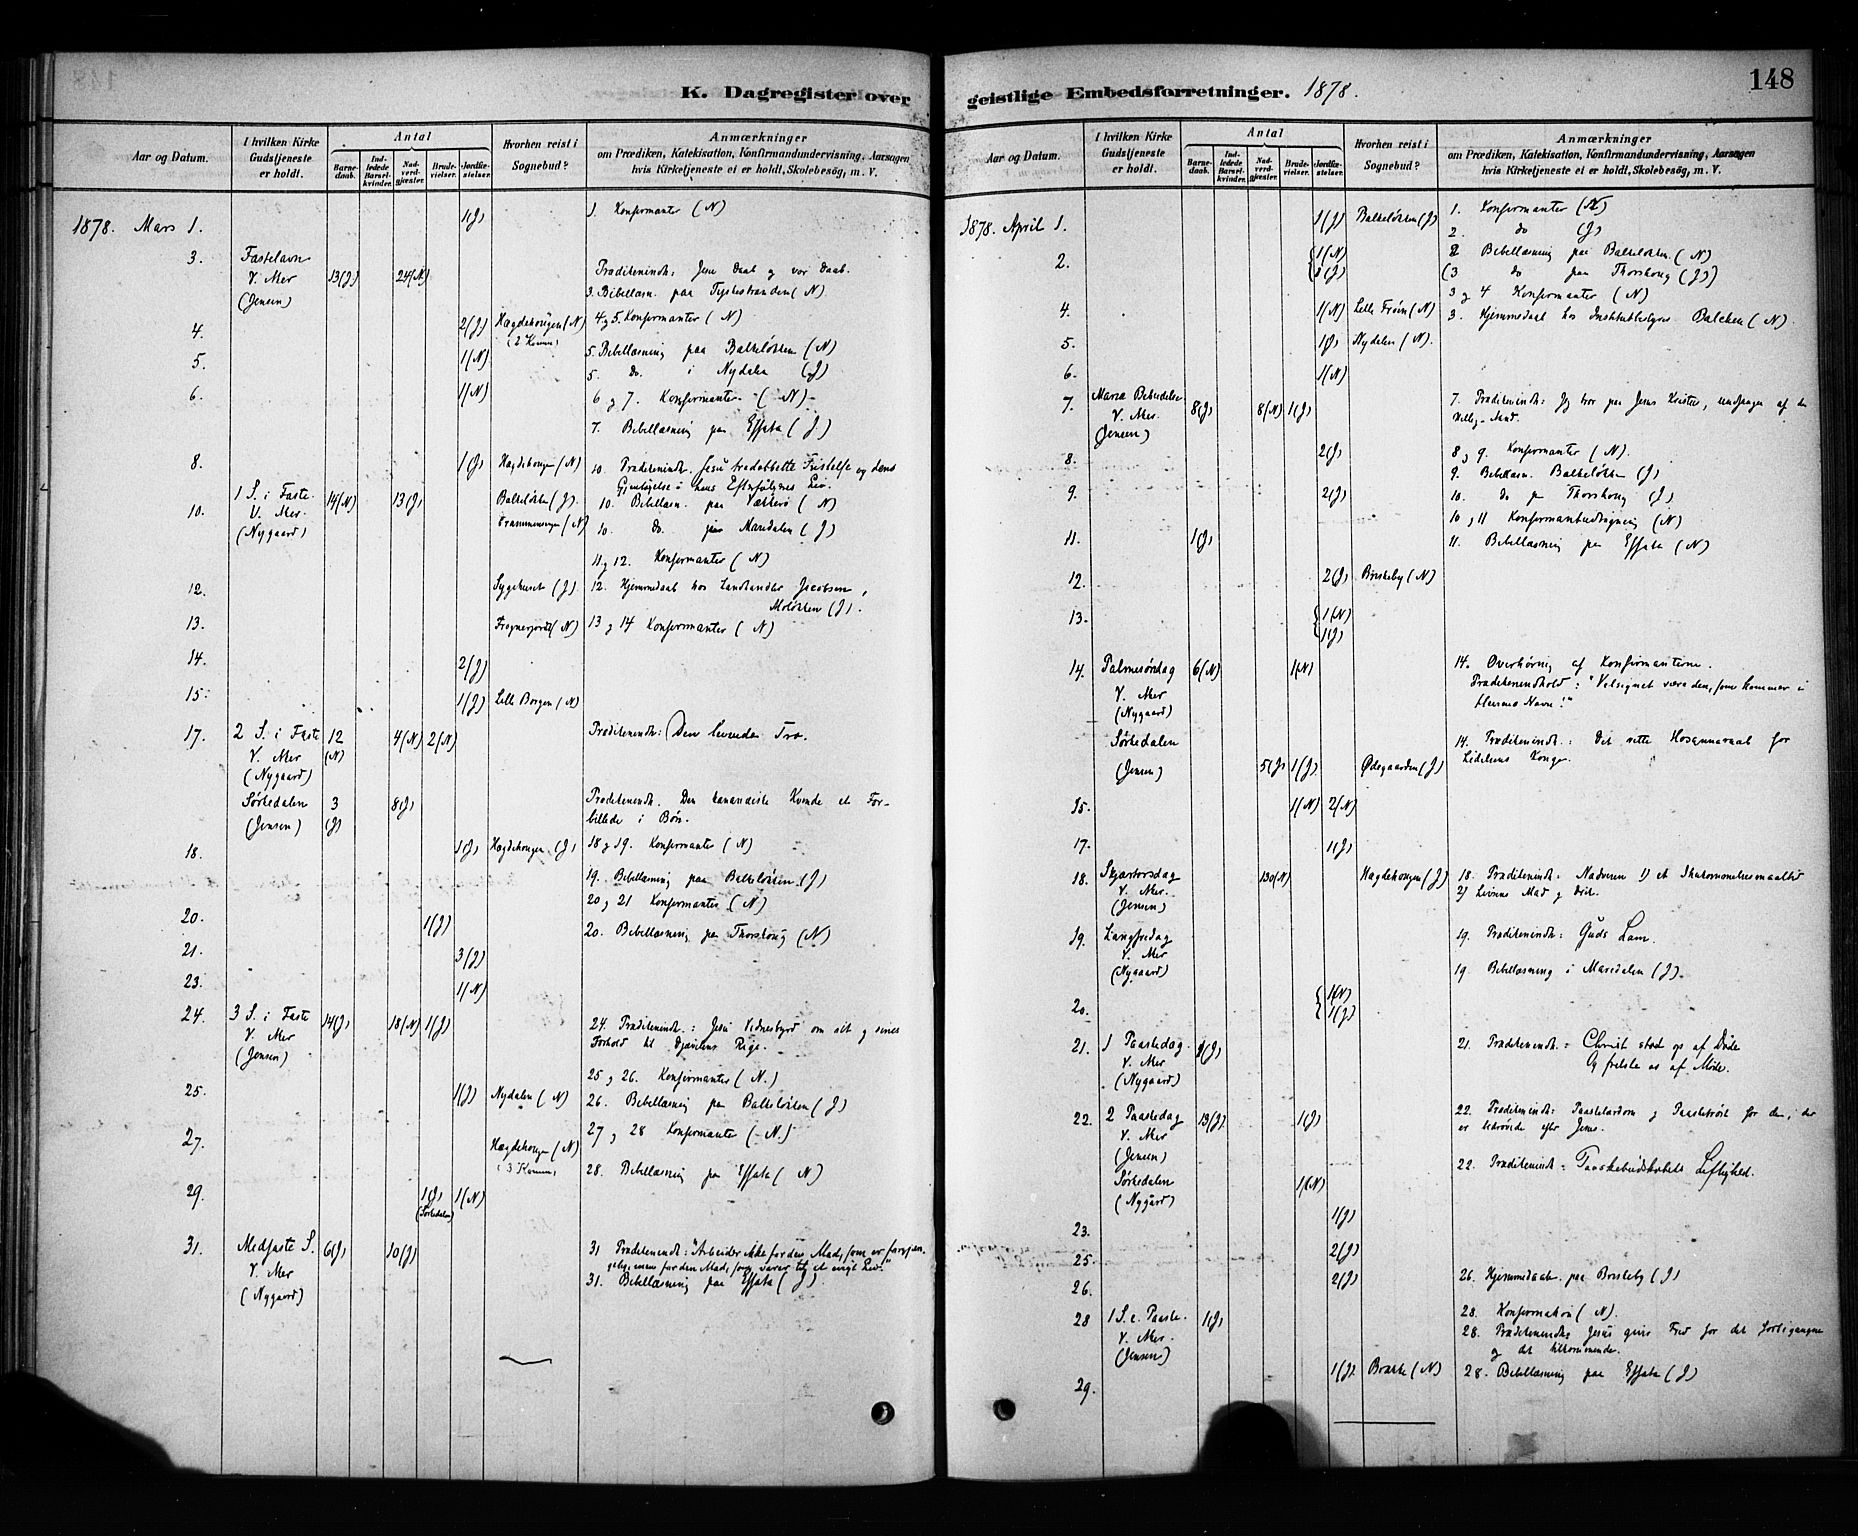 148
K. Dagregister over
geistlige Embedsforretninger. 1878.
Aar og Datum.
I hvilken Kirke Gudstjeneste er holdt.
Antal
Barnedaab.
Indledede Barselkvinder.
Nadverdgjæster.
Brudevielser.
Jordfæstelser.
Hvorhen reist i Sognebud?
Anmærkninger
om Prædiken, Katekisation, Konfirmandundervisning, Aarsagen
hvis Kirketjeneste ei er holdt, Skolebesög, m. V.
1878. Mars 1. 1(J) 1. Konfirmanter (N)
3. Fastelavn
V. Aker 13(J) 24(N) Prædikenindh: Jesu Daab og vor Daab.
(Jensen) 3. Bibellæsn. paa Tyskestranden (N)
4. 2(J) Hægdehougen (N) 4 og 5. Konfirmanter (N)
5. 1(N) 5. Bibellæsning paa Balkeløkken (N)
5. do. i Nydalen (J)
6. 1(N) 6 og 7. Konfirmanter (N)
7. Bibellæsning paa Effata (J)
8. 1(J) Hægdehougen (N) 10. Prædikenindh. Jesu tredobbelte Fristelse og dens
Gjentagelse i hans Efterfølgeres Liv.
10. 1 S. i Faste 14(N) 13(J) Balkeløkken (J) 10. Bibellæsn. paa Vækkerø (N)
V. Aker.
(Nygaard) 10. do. paa Maridalen (J)
11 og 12. Konfirmanter (N)
12. Sygehuset (J) 12. Hjemmedaab hos Landhandler Jacobsen,
Moløkken (J).
13. Frognerjordet (N) 13 og 14 Konfirmanter (N)
14. 2(J)
15. 1(J) Lille Borgen (N)
17. 2 S. i Faste 12 4(N) 2(N) Prædikenindh: Den levende Tro.
V. Aker (N)
(Nygaard)
Sørkedalen 3 8(J) Prædikenindh. Den kananæiske Kvinde et For-
(Jensen) (J) billede i Bøn.
18. 1(J) Hægdehougen (J) 18 og 19. Konfirmanter (N)
19. Bibellæsning paa Balkeløkken (J)
20 og 21 Konfirmanter (N)
20. 1(J) 20. Bibellæsning paa Thorshoug (N)
21. 3(J)
23. 1(N)
24. 3 S. i Faste 14(J) 18(N) 1(J) 24. Prædikenindh.: Jesu Vidnesbyrd om sit og sines
V. Aker Forhold til Djævelens Rige.
(Jensen)
25 og 26. Konfirmanter (N.)
25. 1(J) Nydalen (N) 26. Bibellæsning paa Balkeløkken (J)
27. Hægdehougen (N) 27 og 28 Konfirmanter (N.)
(3 Komm) 28. Bibellæsning paa Effata (N)
29. 1(J) 1(N)
(Sørkedalen)
31. Medfaste S. 6(J) 10(J) 31 Prædikenindh: "Arbeider ikke for den Mad, som er forgjæn-
V. Aker gelig, men for den Mad, som varer til et evigt Liv."
(Nygaard) 31. Bibellæsning paa Effata (J)
148
Aar og Datum.
I hvilken Kirke Gudstjeneste er holdt.
Antal
Barnedaab.
Indledede Barselkvinder.
Nadverdgjæster.
Brudevielser.
Jordfæstelser.
Hvorhen reist i Sognebud?
Anmærkninger
om Prædiken, Katekisation, Konfirmandundervisning, Aarsagen
hvis Kirketjeneste ei er holdt, Skolebesög, m. V.
1878. April 1. 1(J) Balkeløkken (J) 1. Konfirmanter (N)
2. do (J)
2. 1(N) 2 Bibellæsning paa Balkeløkken (N)
(J) (3 do paa Thorshoug (J))
3 og 4 Konfirmanter (N)
4. 1(N) Lille Frøen (N) 3. Hjemmedaab hos Institutbestyrer Balchen (N)
5. 1(J) Nydalen (N).
6. 1(N)
7. Mariæ Bebudelse 8(J) 8(N) 1(J) 7. Prædikenindh: Jeg tror paa Jesus Kristus, undfangen af den
V. Aker. Hellig-Aand.
(Jensen)
8. 2(J) 8 og 9. Konfirmanter (N).
9. Bibellæsn. Balkeløkken (J)
9. 2(J) 10. do paa Thorshoug (J)
10 og 11 Konfirmantudtagning (N)
11. 1(J) 11. Bibellæsning paa Effata (N)
12. 2(J) Briskeby (N)
13. 1(N)
1(J)
14. Palmesøndag 6(N) 1(N) 14. Overhøring af Konfirmanterne.
V. Aker Prædikenindhold: "Velsignet være den, som kommer i
(Nygaard) Herrens Navn!"
Sørkedalen 14. Prædikenindh.: Det rette Hosiannaraab for
(Jensen) 5(J) 1(J) Ødegaarden (J) Lidelsens Konge.
15. 1(N) 2(N)
17. 1(J)
18. Skjærtorsdag 130(N) Hægdehougen (J) 18. Prædikenindh: Nadveren 1) et Ihukommelsesmaaltid
V. Aker. 2) Livsens Mad og Drik.
(Jensen)
19. Langfredag 19. Prædikenindh: Guds Lam.
V. Aker
(Nygaard) 19. Bibellæsning i Maridalen (J).
20. 1(N)
1(J)
21. 1 Paaskedag (J) 21. Prædikenindh: Christ stod op af Døde
V. Aker Og frelste os af Møde.
(Nygaard)
22. 2 Paaskedag 13(J) 1(J) 22. Prædikenindh: Paaskelærdom og Paasketrøst for dem, der
V. Aker er bedrøvede efter Jesus.
(Jensen) 22. Prædikenindh: Paaskebudskabets Liflighed.
Sørkedalen 1(N)
(Nygård)
23. 1(J)
25. 2(J)
26. 2(J) 26. Hjemmedaab paa Briskeby (J)
28 1 S. e. Paaske. 1(J) 28. Konfirmation (N).
V. Aker. 28. Prædikenindh: Jesus giver Fred for det forbigangne
(Jensen) og det tilkommende.
29. 1(J). Brække (N) 28. Bibellæsning paa Effata (J)